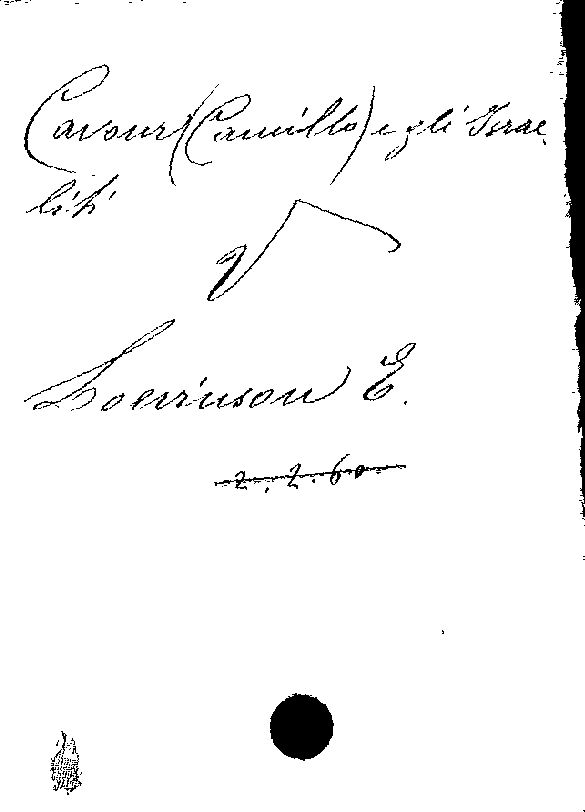 Cavour (Camillo) e gli Israe
liti
V
Loevinson E.
2. 2. 60.